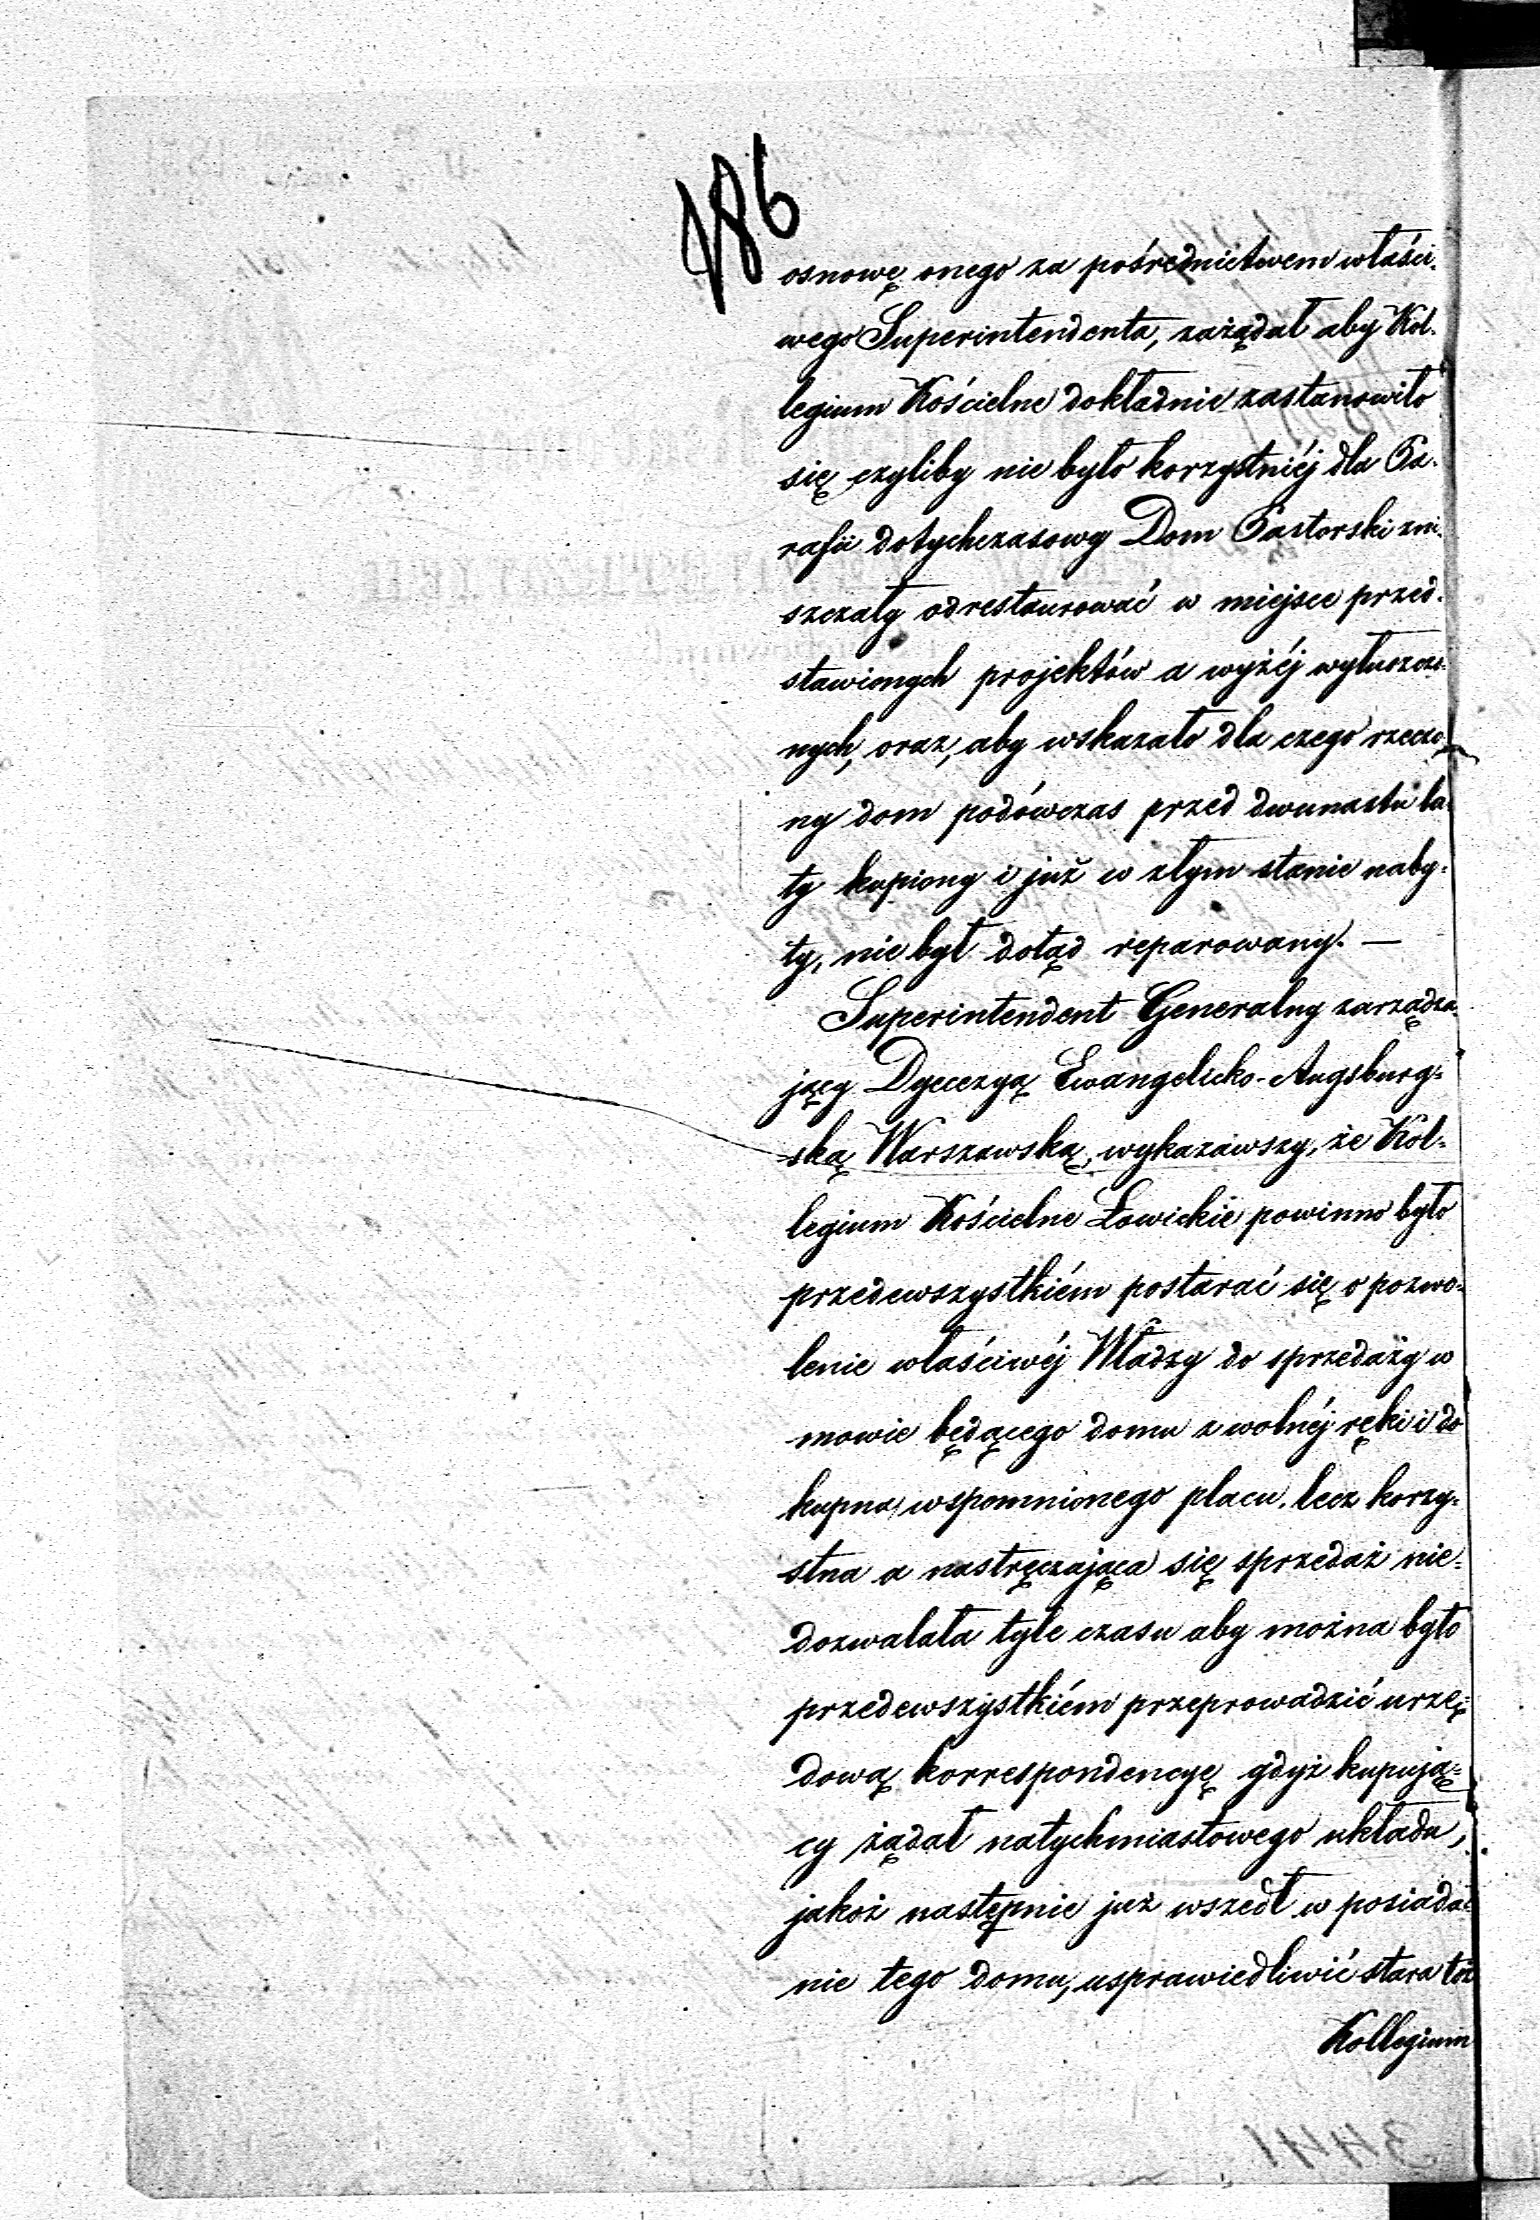 186
osnowę onego za pośrednictwem właści-
wego Superintendenta, zażądał aby Kol-
legium Kościelne dokładnie zastanowiło
się czyliby nie było korzystniéj dla Pa-
rafii dotychczasowy Dom Pastorski zni-
szczały odrestaurować w miejsce przed-
stawionych projektów a wyżéj wyłuszczo-
nych, oraz, aby wskazało dla czego rzeczo-
ny dom podówczas przed dwunastu la-
ty kupiony i już w złym stanie naby-
ty, nie był dotąd reparowany. —
Superintendent Generalny zarządza-
jący Dyecezyą Ewangelicko-Augsburg-
ską Warszawską, wykazawszy, że Kol-
legium Kościelne Łowickie powinno było
przedewszystkiém postarać się o pozwo-
lenie właściwéj Władzy do sprzedaży w
mowie będącego domu z wolnéj ręki i do
kupna wspomnionego placu, lecz korzy-
stna a nastręczająca się sprzedaż nie-
dozwalała tyle czasu aby można było
przedewszystkiém przeprowadzić urzę-
dową korrespondencyę gdyż kupują-
cy żądał natychmiastowego układu,
jakoż następnie już wszedł w posiada-
nie tego domu, usprawiedliwić stara toż
Kollegium